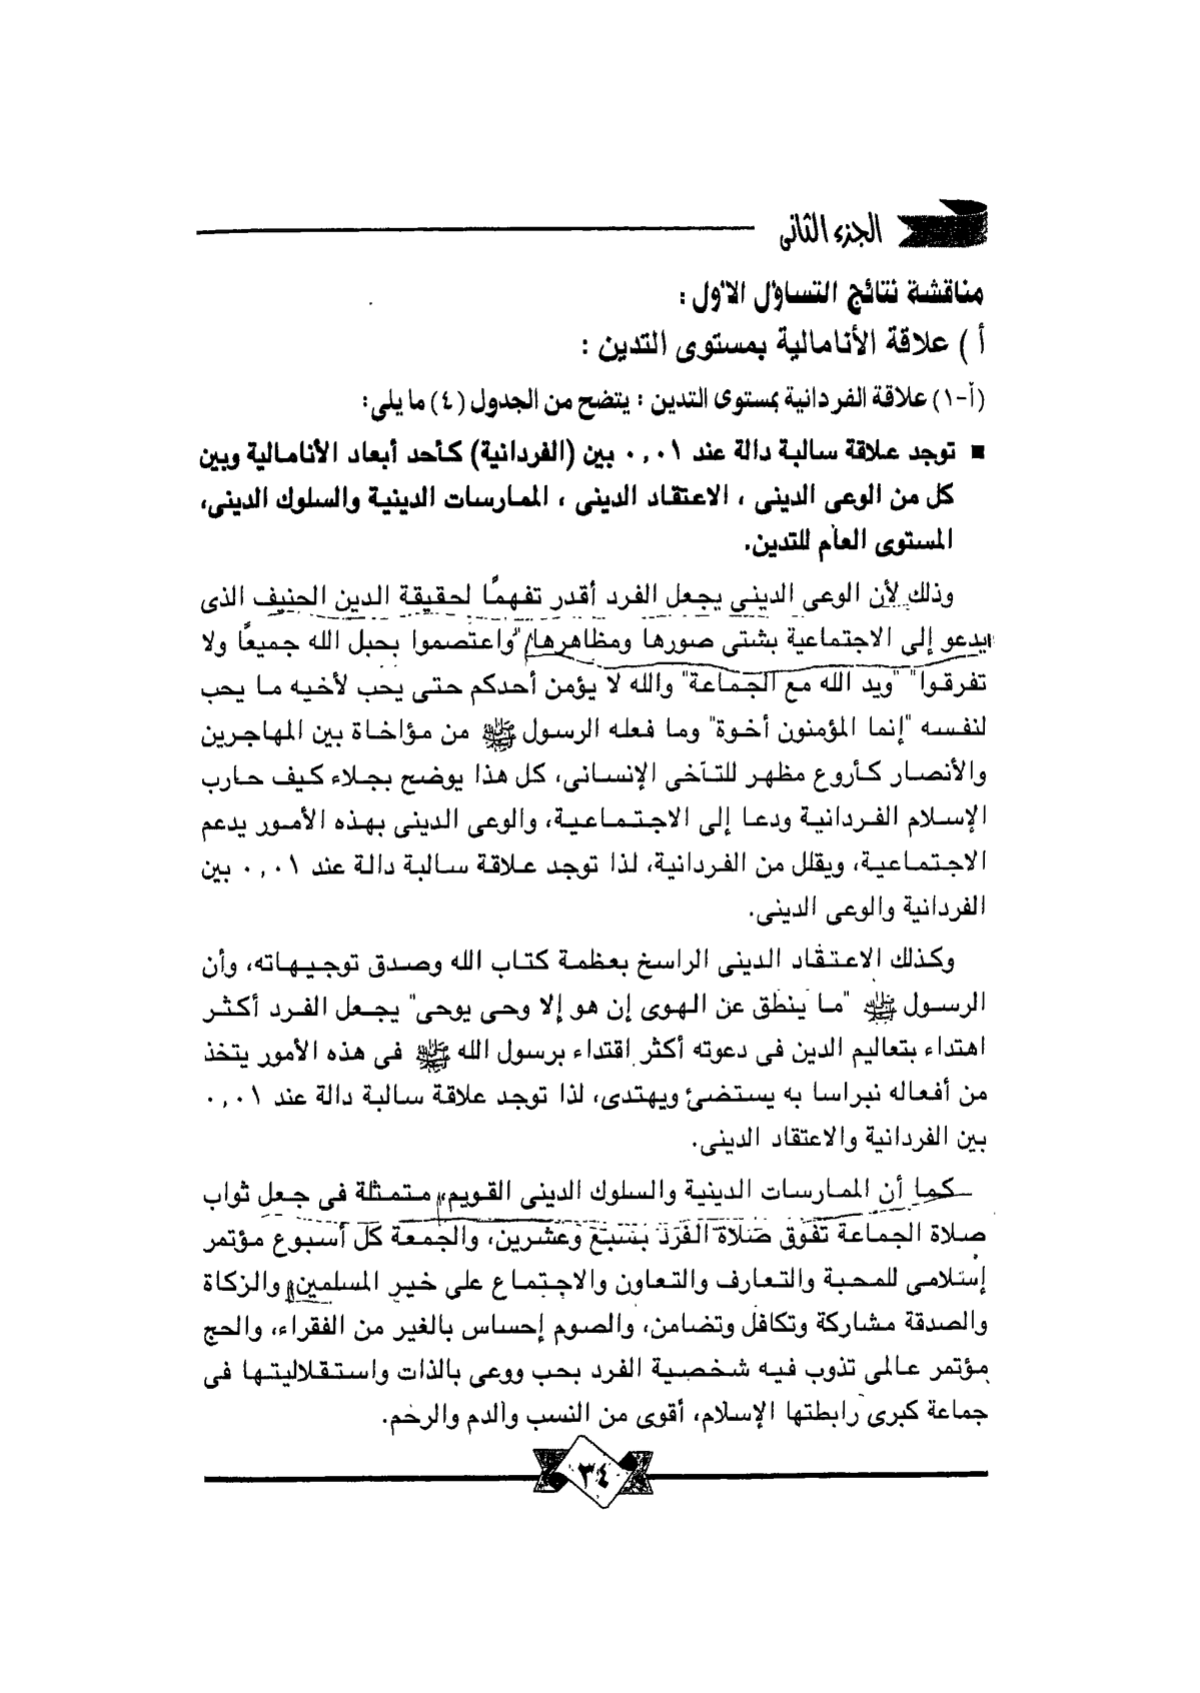 الجزء الثانى
مناقشة نتائج التساؤل الأول :
أ ) علاقة الأنامالية بمستوى التدين :
(أ-١) علاقة الفردانية بمستوى التدين : يتضح من الجدول (٤) ما يلى:
■ توجد علاقة سالبة دالة عند ٠,٠١ بين (الفردانية) كأحد أبعاد الأنامالية وبين
كل من الوعى الدينى ، الاعتقاد الدينى ، الممارسات الدينية والسلوك الدينى،
المستوى العام للتدين.
وذلك لأن الوعى الدينى يجعل الفرد أقدر تفهمًا لحقيقة الدين الحنيف الذى
يدعو إلى الاجتماعية بشتى صورها ومظاهرها "واعتصموا بحبل الله جميعًا ولا
تفرقوا" "ويد الله مع الجماعة" والله لا يؤمن أحدكم حتى يحب لأخيه ما يحب
لنفسه "إنما المؤمنون أخوة" وما فعله الرسول ﷺ من مؤاخاة بين المهاجرين
والأنصار كأروع مظهر للتآخى الإنسانى، كل هذا يوضح بجلاء كيف حارب
الإسلام الفردانية ودعا إلى الاجتماعية، والوعى الدينى بهذه الأمور يدعم
الاجتماعية، ويقلل من الفردانية، لذا توجد علاقة سالبة دالة عند ٠,٠١ بين
الفردانية والوعى الدينى.
وكذلك الاعتقاد الدينى الراسخ بعظمة كتاب الله وصدق توجيهاته، وأن
الرسول ﷺ "ما ينطق عن الهوى إن هو إلا وحى يوحى" يجعل الفرد أكثر
اهتداء بتعاليم الدين فى دعوته أكثر اقتداء برسول الله ﷺ فى هذه الأمور يتخذ
من أفعاله نبراسا به يستضئ ويهتدى، لذا توجد علاقة سالبة دالة عند ٠,٠١
بين الفردانية والاعتقاد الدينى.
كما أن الممارسات الدينية والسلوك الدينى القويم، متمثلة فى جعل ثواب
صلاة الجماعة تفوق صلاة الفرد بسبع وعشرين، والجمعة كل أسبوع مؤتمر
إسلامى للمحبة والتعارف والتعاون والاجتماع على خير المسلمين، والزكاة
والصدقة مشاركة وتكافل وتضامن، والصوم إحساس بالغير من الفقراء، والحج
مؤتمر عالمى تذوب فيه شخصية الفرد بحب ووعى بالذات واستقلاليتها فى
جماعة كبرى رابطتها الإسلام، أقوى من النسب والدم والرحم.
٣٤